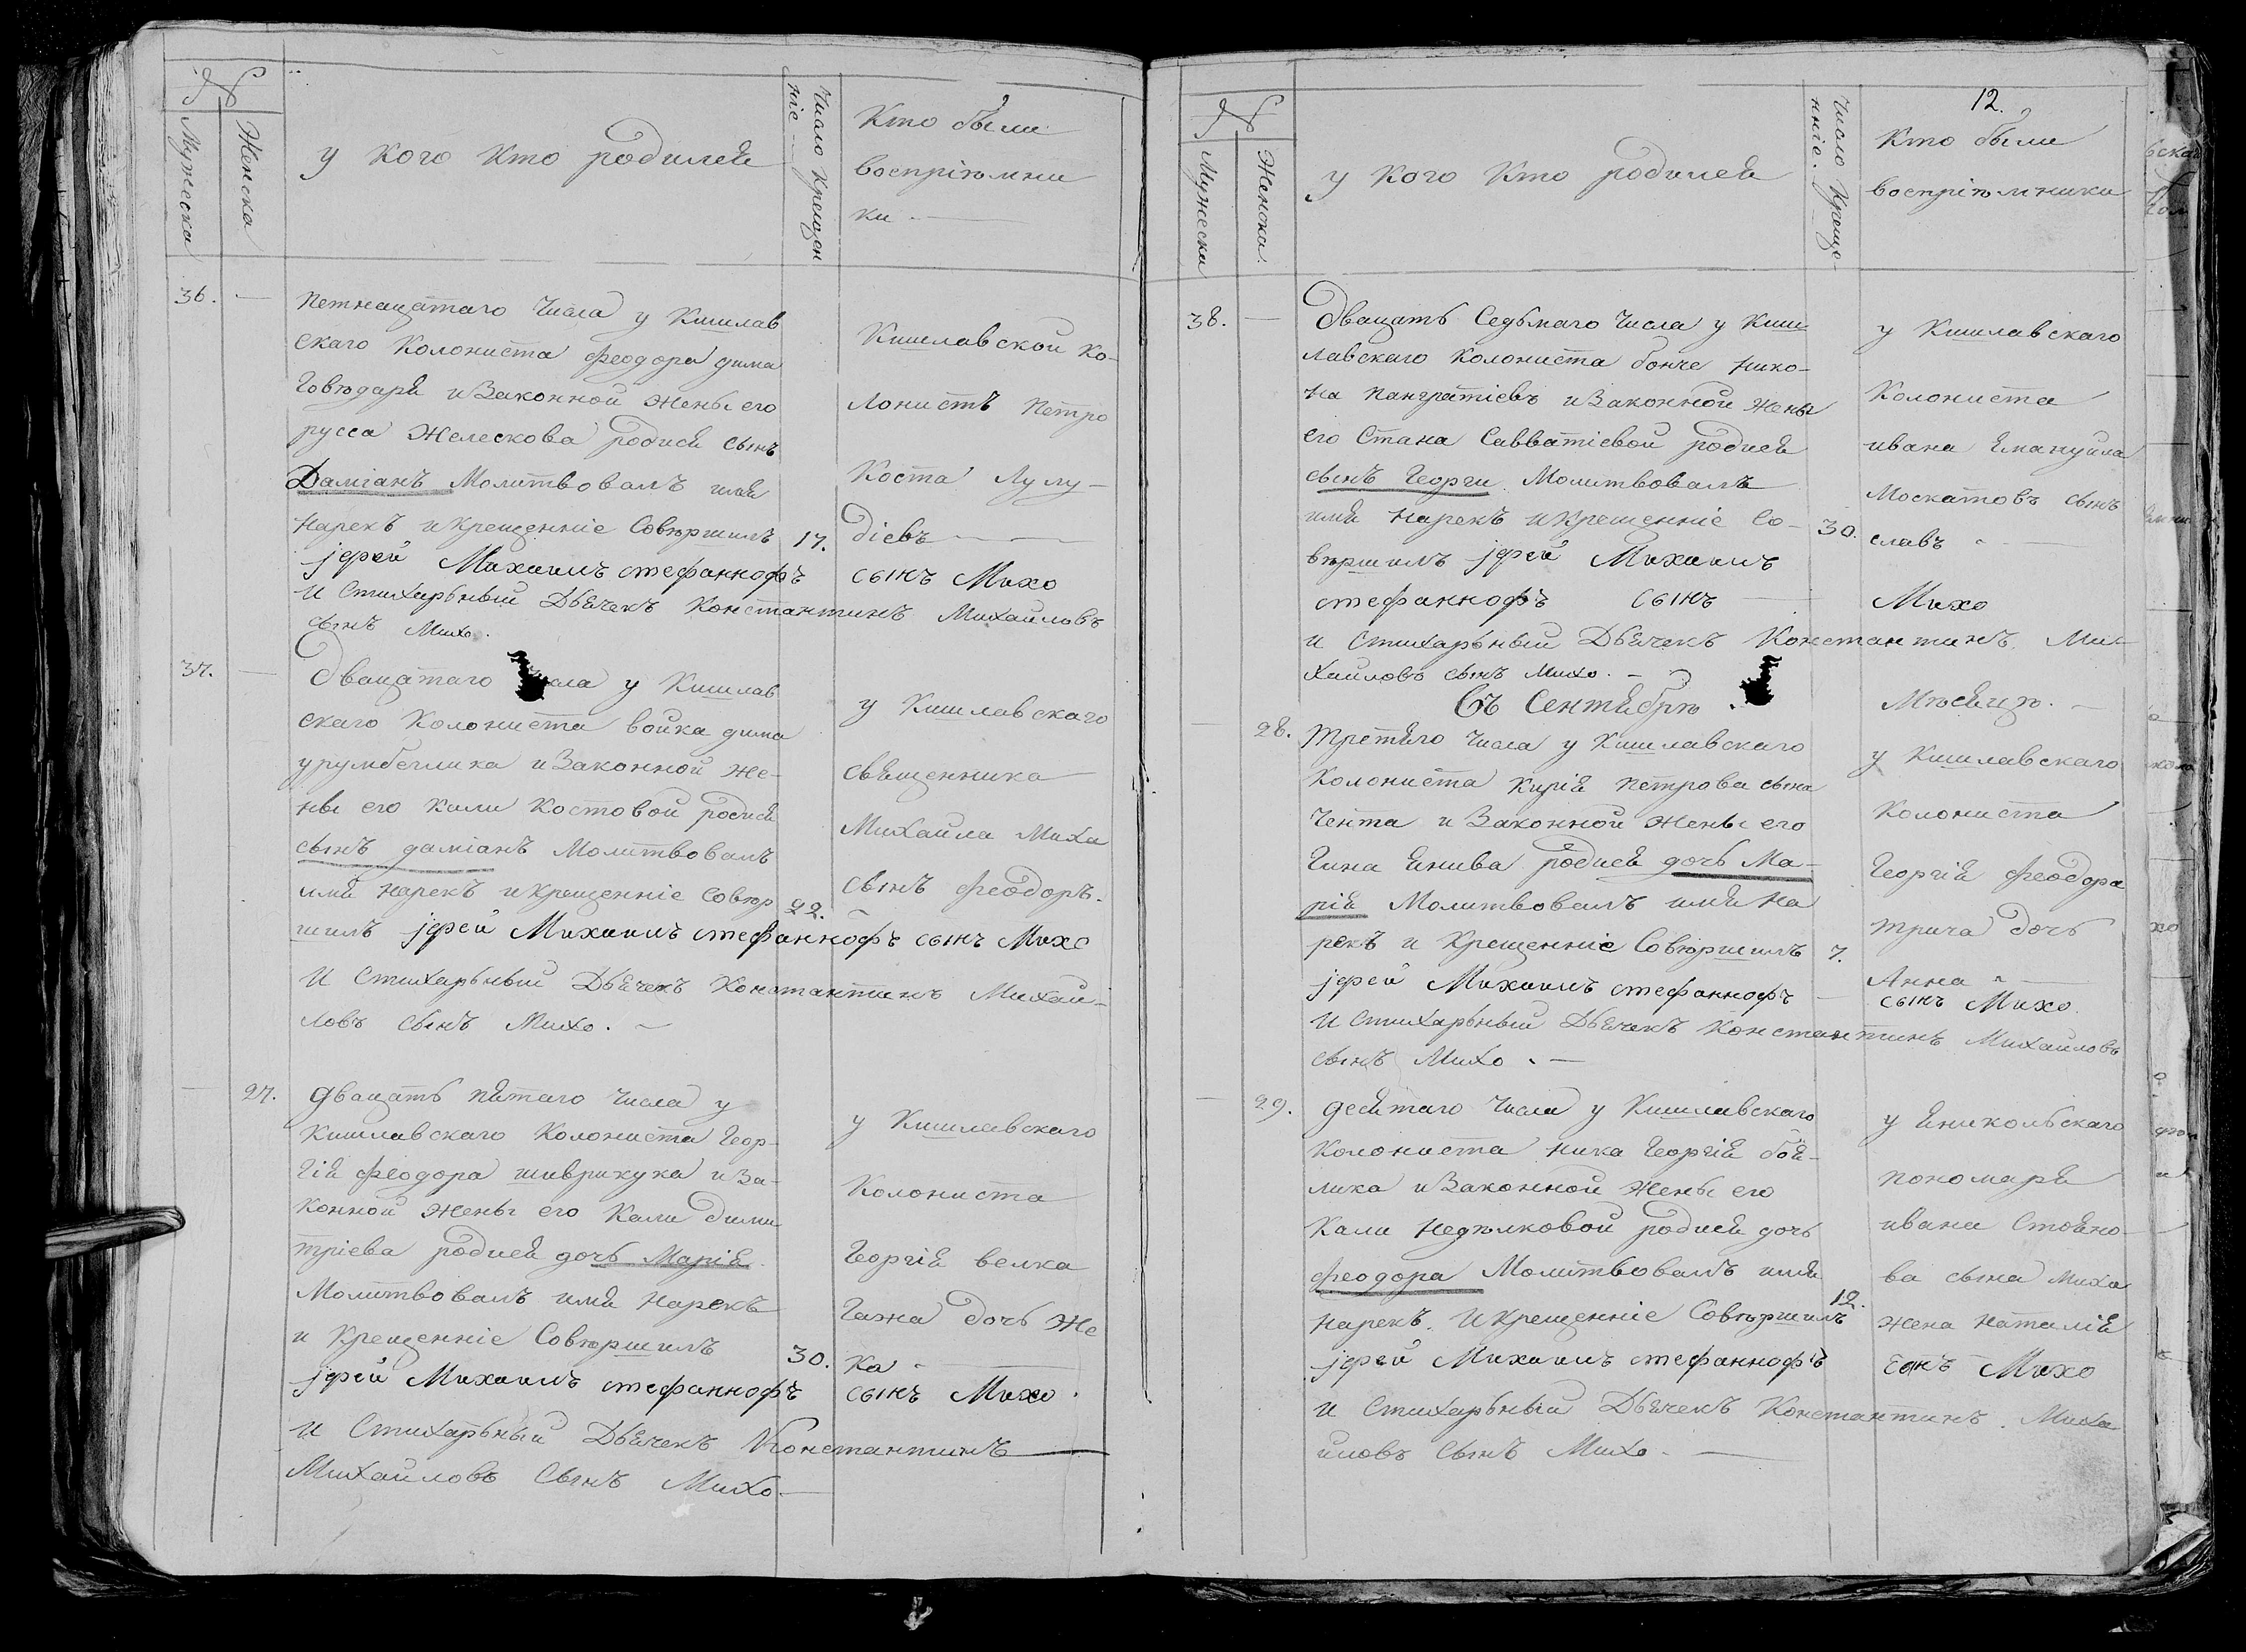 №
Мужеска
Женска
у кого кто родилей
Число Крещен
ніе
Кто были
воспріѣмни
ки.
36.
петнацатаго числа у Кишлав
скаго Колониста Феодора дима
Говѣдаря и Законной жены его
русса Желескова родися сынъ
Даміанъ Молитвовалъ имя
нарекъ и крещенніе совѣршилъ 17.
іерей Михаилъ стефанноф̾ъ сынъ Михо
и Стихарьный Дьячекъ Константинъ Михайловъ
сынъ Михо.
Кишлавской ко-
лонистъ Петро
Коста Лулу-
діевъ
37.
Двацатаго числа у Кишлав
скаго Колониста войка дима
урумбеглика и Законной же-
ны его Кали Костовой родися
сынъ даміанъ Молитвовалъ
имя нарекъ и крещенніе совѣр 22.
шилъ іерей Михаилъ стефанноф̾ъ сынъ Михо
и Стихарьный Дьячекъ Константинъ Михай-
ловъ сынъ Михо.
у Кишлавскаго
священника
Михайла Миха
сынъ Феодоръ.
27.
Двацать пятаго числа у
Кишлавскаго Колониста Геор-
гія Феодора шиврикука и За-
конной жены его Кали Дими
тріева родися дочь Марія
Молитвовалъ имя нарекъ
и Крещенніе Совѣршилъ 30.
іерей Михаилъ стефанноф̾ъ сынъ Михо.
и Стихарьный Дьячекъ Константинъ
Михайловъ Сынъ Михо.
у Кишлавскаго
Колониста
Георгія велка
Гажна дочь Же
ка
12.
№
Мужески
Женска.
у кого кто родилей
Число Креще-
нніе.
Кто были
воспріѣмники
38.
Двацать Седьмаго числа у Киш-
лавскаго колониста бонче нико-
ла панкратіевъ и Законной жены
его Стана Савватіевой родися
сынъ Георги Молитвовалъ
имя нарекъ и крещенніе Со- 30.
вѣршилъ іерей Михаилъ
стефанноф̾ъ сынъ Михо
и Стихарьный Дьячекъ Константинъ Ми-
хайловъ сынъ Михо.
у Кишлавскаго
Колониста
ивана Емануила
Москатовъ сынъ
славъ
Въ Сентябрѣ. Мѣсяцѣ.
28.
Третяго числа у Кишлавскаго
Колониста Кирія петрова сына
Чента и Законной жены его
Гина Янива родися дочь Ма-
рія Молитвовалъ имя на
рекъ и Крещенніе Совѣршилъ 7.
іерей Михаилъ стефанноф̾ъ сынъ Михо.
и Стихарьный Дьячекъ Константинъ Михайловъ
сынъ Михо.
у Кишлавскаго
Колониста
Георгія Феодора
трича дочь
Анна
29.
Десятаго числа у Кишлавскаго
Колониста ника Георгія боя-
лика и Законной жены его
Кали Недѣлковой родися дочь
Феодора Молитвовалъ имя
нарекъ. и крещенніе Совѣршилъ 12.
іерей Михаилъ стефанноф̾ъ сынъ Михо
и Стихарьный Дьячекъ Константинъ. Миха
йловъ Сынъ Михо.
у Яникольскаго
пономаря
ивана Стояно-
ва сына миха
жена Наталія